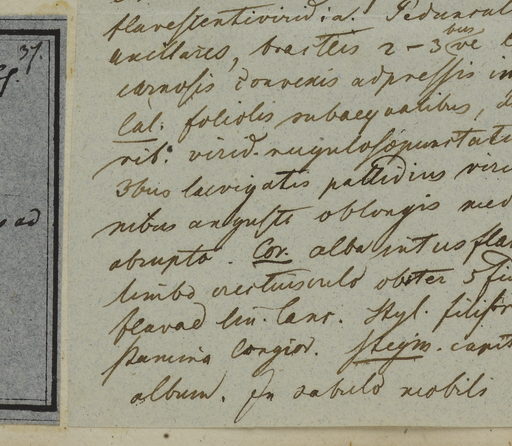 37.
ff.
s ad
flavescentiviridia. Peduncul
axillares, bracteis 2-3bus ve
carnosis convexis adpressis in
Cal. foliolis subaequalibus,
rib. virid. rugulosopunctati
3bus laevigatis pallidius viri
nibus anguste oblongis med
abrupto. Cor. alba intus fla
limbo erectiusculo obter 5fi
flavae lin. lanc. Styl. filifor
stamina longior. Stigm. capit
album. In sabulo mobili